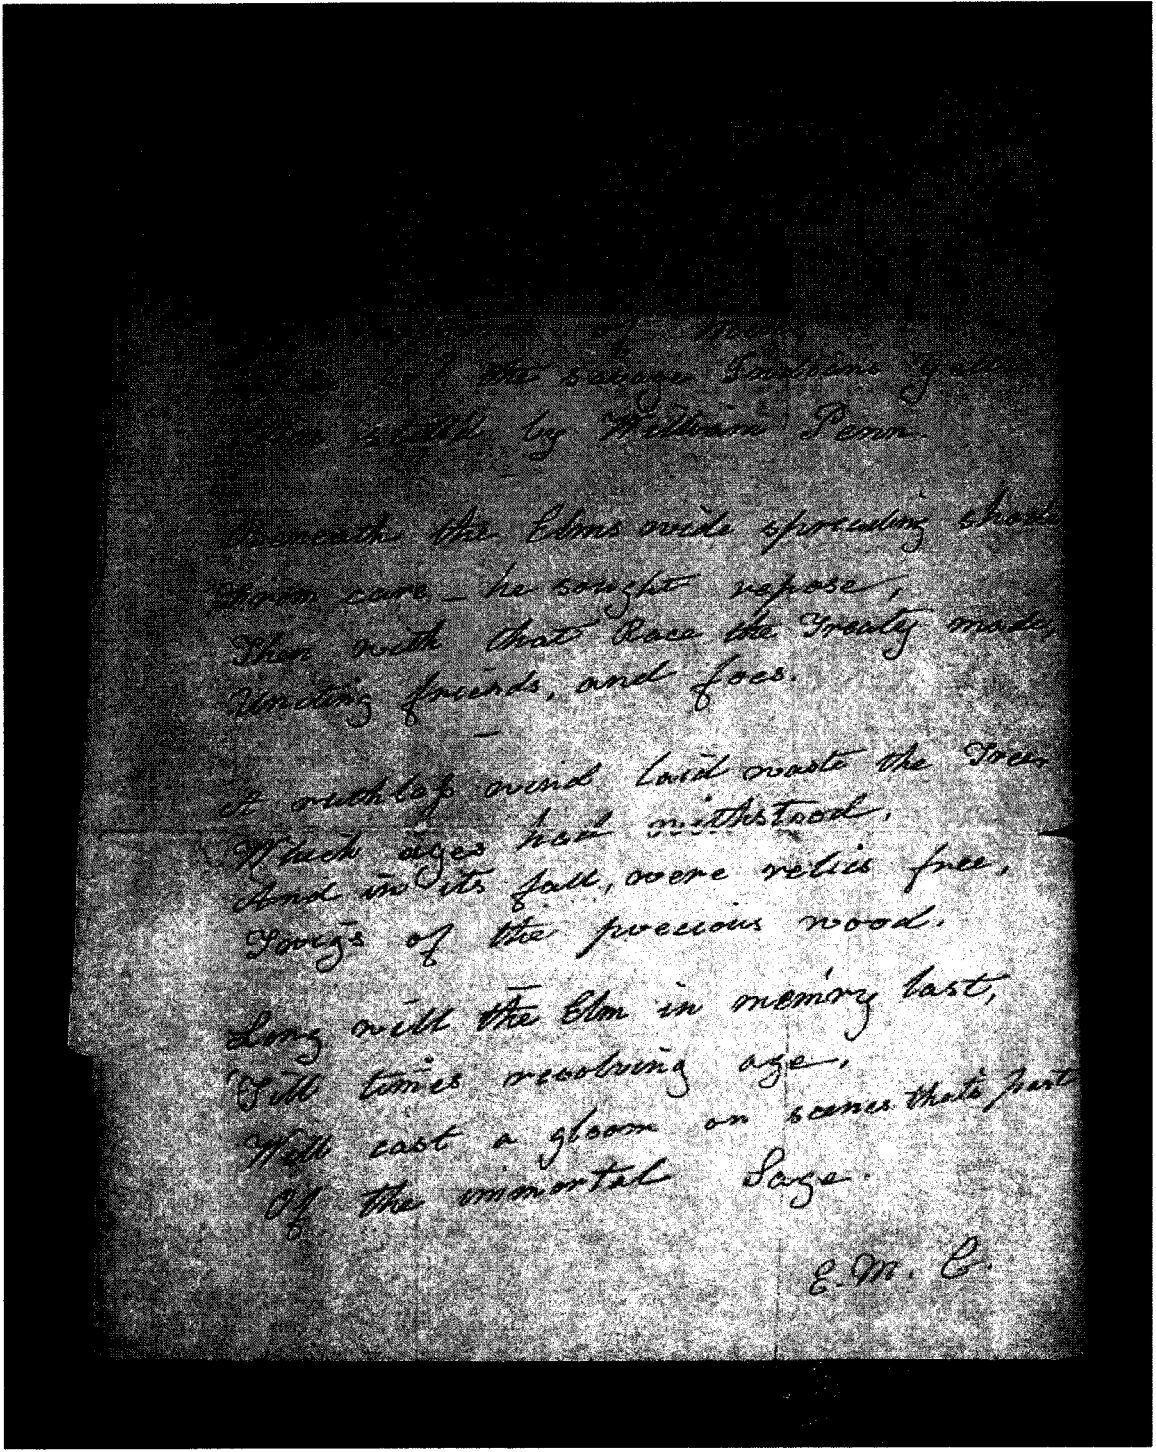 of
the savage Indians
by William Penn.
Beneath the Elms wide spreading shade
From care - he sought repose,
Then with that Race the Treaty made,
Uniting friends, and foes.
A ruthless wind laid waste the Tree,
Which ages had withstood,
And in its fall, were relics free,
Twigs of the precious wood.
Long will the Elm in mem'ry last,
'Till times revolving age,
Will cast a gloom on scenes thats past
Of the immortal Sage.
E. M. C.